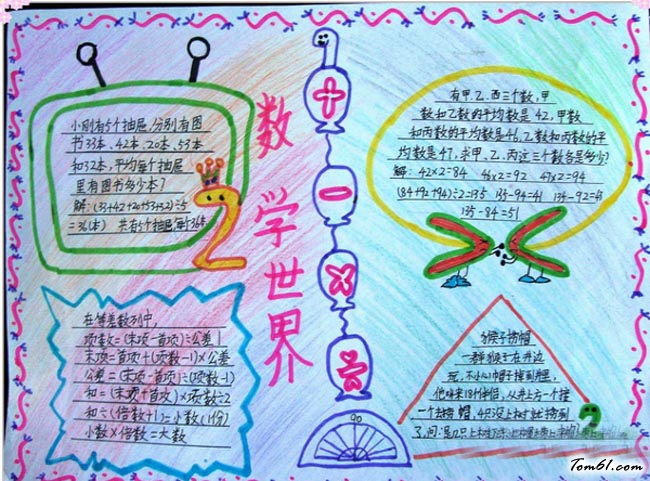 小刚有5个抽屉,分别有图
书33本、42本、20本、53本
和32本,平均每个抽屉
里有图书多少本?
解:(33+42+20+53+32)÷5
=36(本) 共有5个抽屉,每个36本
2
数学世界
+
-
×
÷
90
有甲、乙、丙三个数,甲
数和乙数的平均数是42,甲数
和丙数的平均数是46,乙数和丙数的平
均数是47,求甲、乙、丙这三个数各是多少?
解:42×2=84 46×2=92 47×2=94
(84+92+94)÷2=135 135-94=41 135-92=43
135-84=51
在等差数列中,
项数=(末项-首项)÷公差
末项=首项+(项数-1)×公差
公差=(末项-首项)÷(项数-1)
和=(末项+首项)×项数÷2
和÷(倍数+1)=小数(1份)
小数×倍数=大数
猴子捞帽
一群猴子在井边
玩,不小心帽子掉到井里,
他叫来18个伙伴,从井上方一个接
一个去捞帽,
Tom61.com